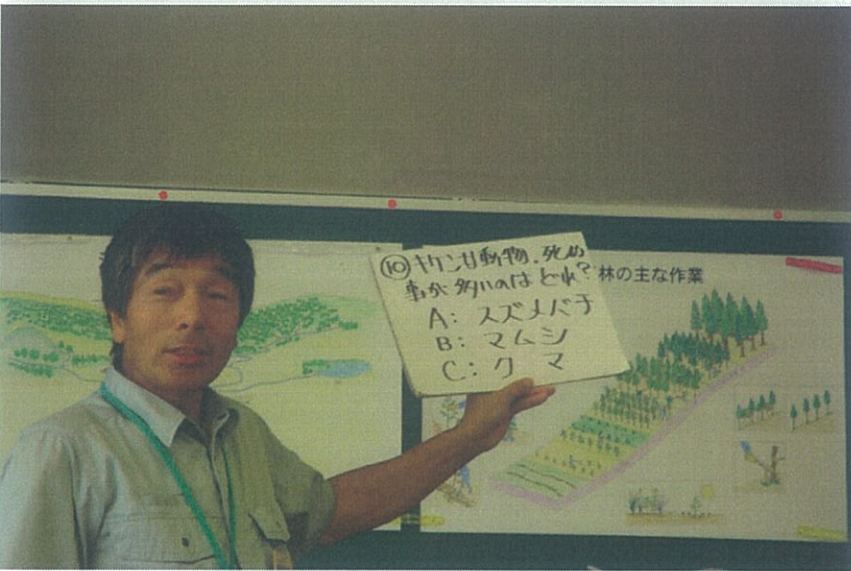 ⑩キケンな動物.死ぬ
事が多いのはどれ?
A: スズメバチ
B: マムシ
C: クマ
林の主な作業